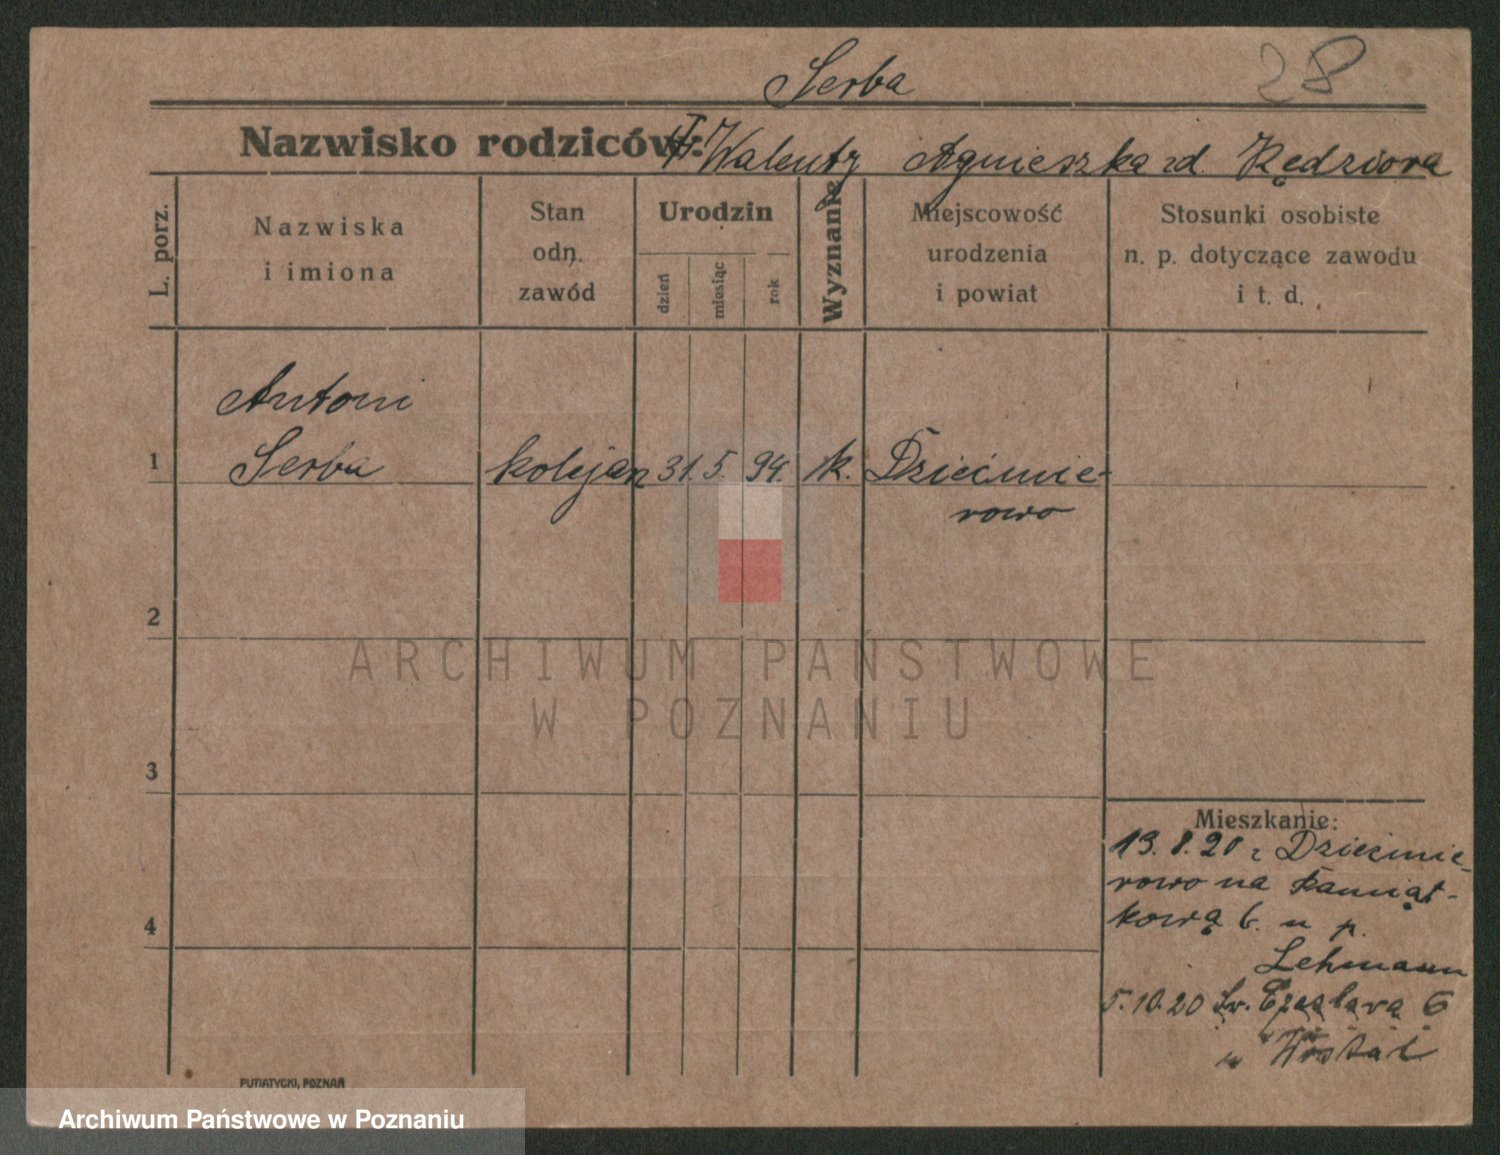 Serba
28
Nazwisko rodziców: Walenty Agnieszka zd. Kędziora
L. porz.
Nazwiska
i imiona
Stan
odn.
zawód
Urodzin
dzień
miesiąc
rok
Wyznanie
Miejscowość
urodzenia
i powiat
Stosunki osobiste
n. p. dotyczące zawodu
i t. d.
Antoni
1 Serba kolejan 31. 5. 94. k. Dziećmie-
rowo
2
ARCHIWUM PAŃSTWOWE
W POZNANIU
3
4
Mieszkanie:
13.8.20 z Dziećmie-
rowo na
6. u p.
Lehmann
5.10.20 Św. Czesława 6
u
PUTIATYCKI, POZNAŃ
Archiwum Państwowe w Poznaniu